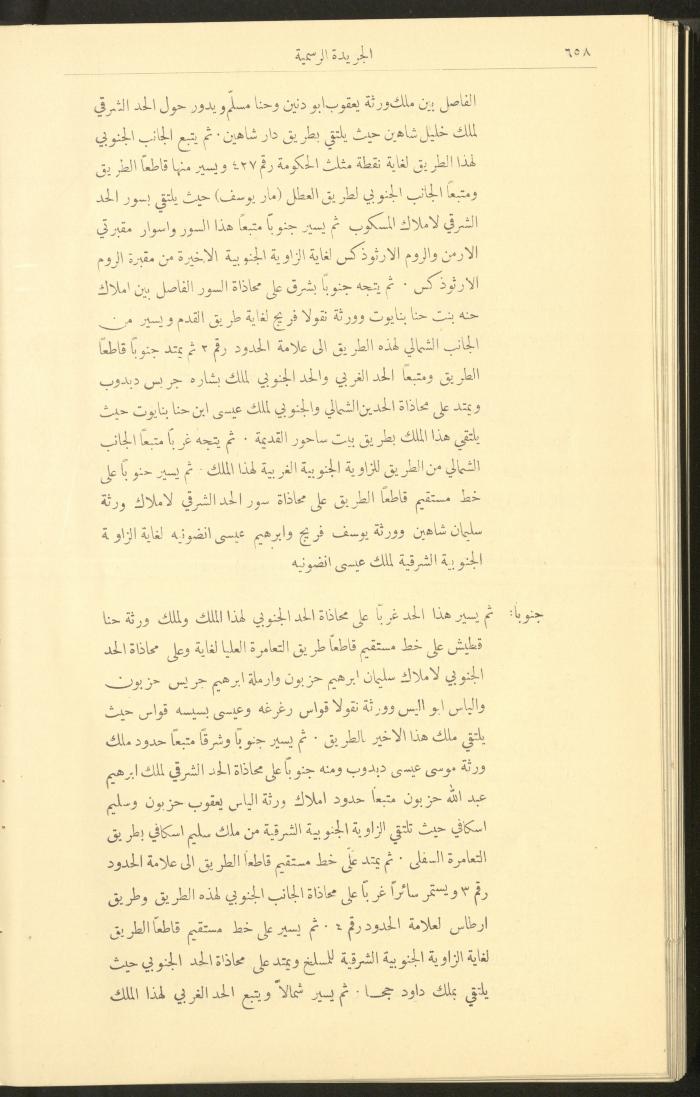 ٦٥٨
الجريدة الرسمية
الفاصل بين ملك ورثة يعقوب ابو دنين وحنا مسلّم ويدور حول الحد الشرقي
لملك خليل شاهين حيث يلتقي بطريق دار شاهين. ثم يتبع الجانب الجنوبي
لهذا الطريق لغاية نقطة مثلث الحكومة رقم ٤٢٧ ويسير منها قاطعًا الطريق
ومتبعًا الجانب الجنوبي لطريق العطل (مار يوسف) حيث يلتقي بسور الحد
الشرقي لاملاك المسكوب ثم يسير جنوبًا متبعًا هذا السور واسوار مقبرتي
الارمن والروم الارثوذكس لغاية الزاوية الجنوبية الاخيرة من مقبرة الروم
الارثوذكس. ثم يتجه جنوبًا بشرق على محاذاة السور الفاصل بين املاك
حنه بنت حنا بنايوت وورثة نقولا فريج لغاية طريق القدم ويسير من
الجانب الشمالي لهذه الطريق الى علامة الحدود رقم ٢ ثم يمتد جنوبًا قاطعًا
الطريق ومتبعًا الحد الغربي والحد الجنوبي لملك بشاره جريس دبدوب
ويمتد على محاذاة الحدين الشمالي والجنوبي لملك عيسى ابن حنا بنايوت حيث
يلتقي هذا الملك بطريق بيت ساحور القديمة. ثم يتجه غربًا متبعًا الجانب
الشمالي من الطريق للزاوية الجنوبية الغربية لهذا الملك. ثم يسير جنوبًا على
خط مستقيم قاطعًا الطريق على محاذاة سور الحد الشرقي لاملاك ورثة
سليمان شاهين وورثة يوسف فريج وابرهيم عيسى انضونيه لغاية الزاوية
الجنوبية الشرقية لملك عيسى انضونيه
جنوبًا: ثم يسير هذا الحد غربًا على محاذاة الحد الجنوبي لهذا الملك ولملك ورثة حنا
قطيش على خط مستقيم قاطعًا طريق التعامرة العليا لغاية وعلى محاذاة الحد
الجنوبي لاملاك سليمان ابرهيم حزبون وارملة ابرهيم جريس حزبون
والياس ابو اليس وورثة نقولا قواس رغرغه وعيسى بسيسه قواس حيث
يلتقي ملك هذا الاخير بالطريق. ثم يسير جنوبًا وشرقًا متبعًا حدود ملك
ورثة موسى عيسى دبدوب ومنه جنوبًا على محاذاة الحد الشرقي لملك ابرهيم
عبد الله حزبون متبعًا حدود املاك ورثة الياس يعقوب حزبون وسليم
اسكافي حيث تلتقي الزاوية الجنوبية الشرقية من ملك سليم اسكافي بطريق
التعامرة السفلى. ثم يمتد على خط مستقيم قاطعًا الطريق الى علامة الحدود
رقم ٣ ويستمر سائرًا غربًا على محاذاة الجانب الجنوبي لهذه الطريق وطريق
ارطاس لعلامة الحدود رقم ٤. ثم يسير على خط مستقيم قاطعًا الطريق
لغاية الزاوية الجنوبية الشرقية للمسلخ ويمتد على محاذاة الحد الجنوبي حيث
يلتقي بملك داود جحا. ثم يسير شمالاً ويتبع الحد الغربي لهذا الملك